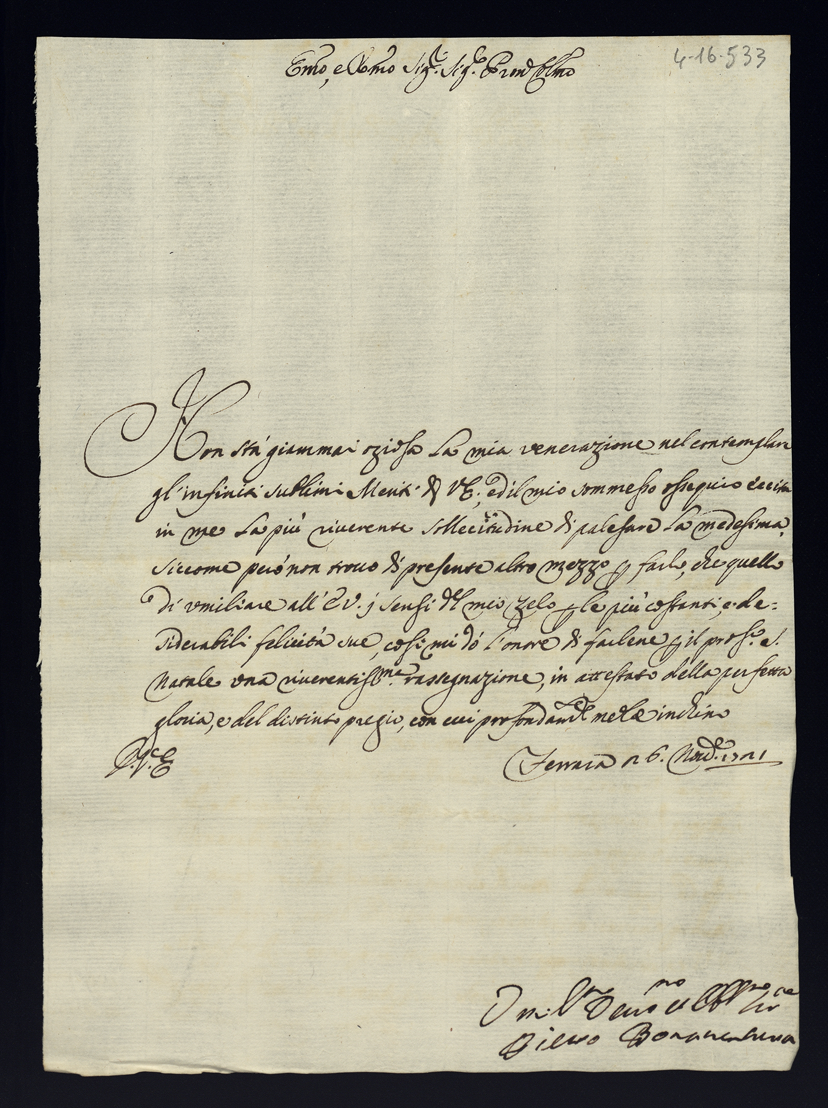 4-16-533
Emo, e Rmo Sigr. Sigr. Pron Colmo
Non stà giammai oziosa la mia venerazione nel contemplare
gl'infiniti sublimi Meriti di V.E., ed il mio sommesso ossequio eccita
in me la più riverente sollecitudine di palesare la medesima,
siccome però non trovo di presente altro mezzo p farlo, che quello
di umiliare all'E.V. j sensi del mio zelo p le più costanti, e de-
siderabili felicità sue, così mi dò l'onore di farlene p il pross.o S.
Natale una riverentissma rassegnazione, in attestato della perfetta
gloria, e del distinto pregio, con cui profondamte me le inchino
D.V.E.
Ferrara 26. Novre. 1721
Umilmo Devmo et Obblmo Sre
Pietro Bonaventura